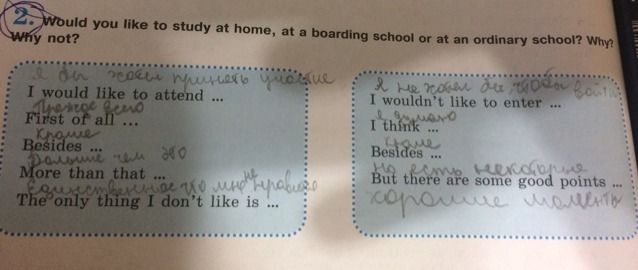 2. Would you like to study at home, at a boarding school or at an ordinary school? Why?
Why not?
Я бы хотел принять участие
I would like to attend ...
Прежде всего
First of all ...
Кроме
Besides ...
Больше чем это
More than that ...
Единственное что мне не нравится
The only thing I don't like is ...
Я не хотел бы, чтобы войти
I wouldn't like to enter ...
Я думаю
I think ...
Кроме
Besides ...
Но есть некоторые
But there are some good points ...
хорошие моменты